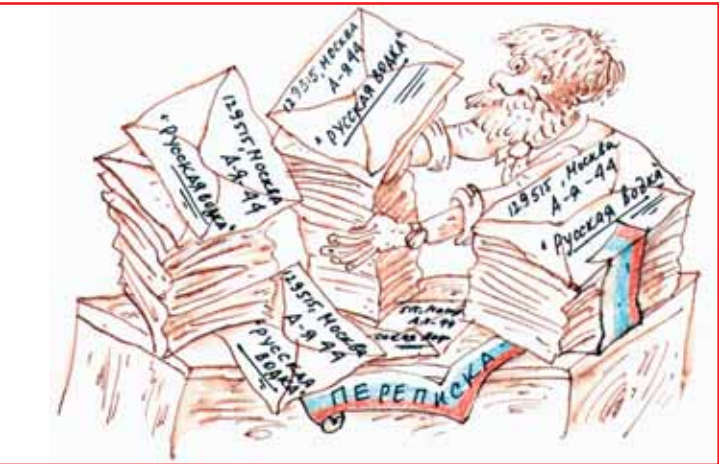 129515, МОСКВА
А-Я 44
"РУССКАЯ ВОДКА"
129515, МОСКВА
А-Я-44
"РУССКАЯ ВОДКА"
129515, Москва
А-Я-44
"Русская водка"
129515, Москва
А-Я 44
"РУССКАЯ
ВОДКА"
515, Моск
А.Я-44
ПЕРЕПИСКА